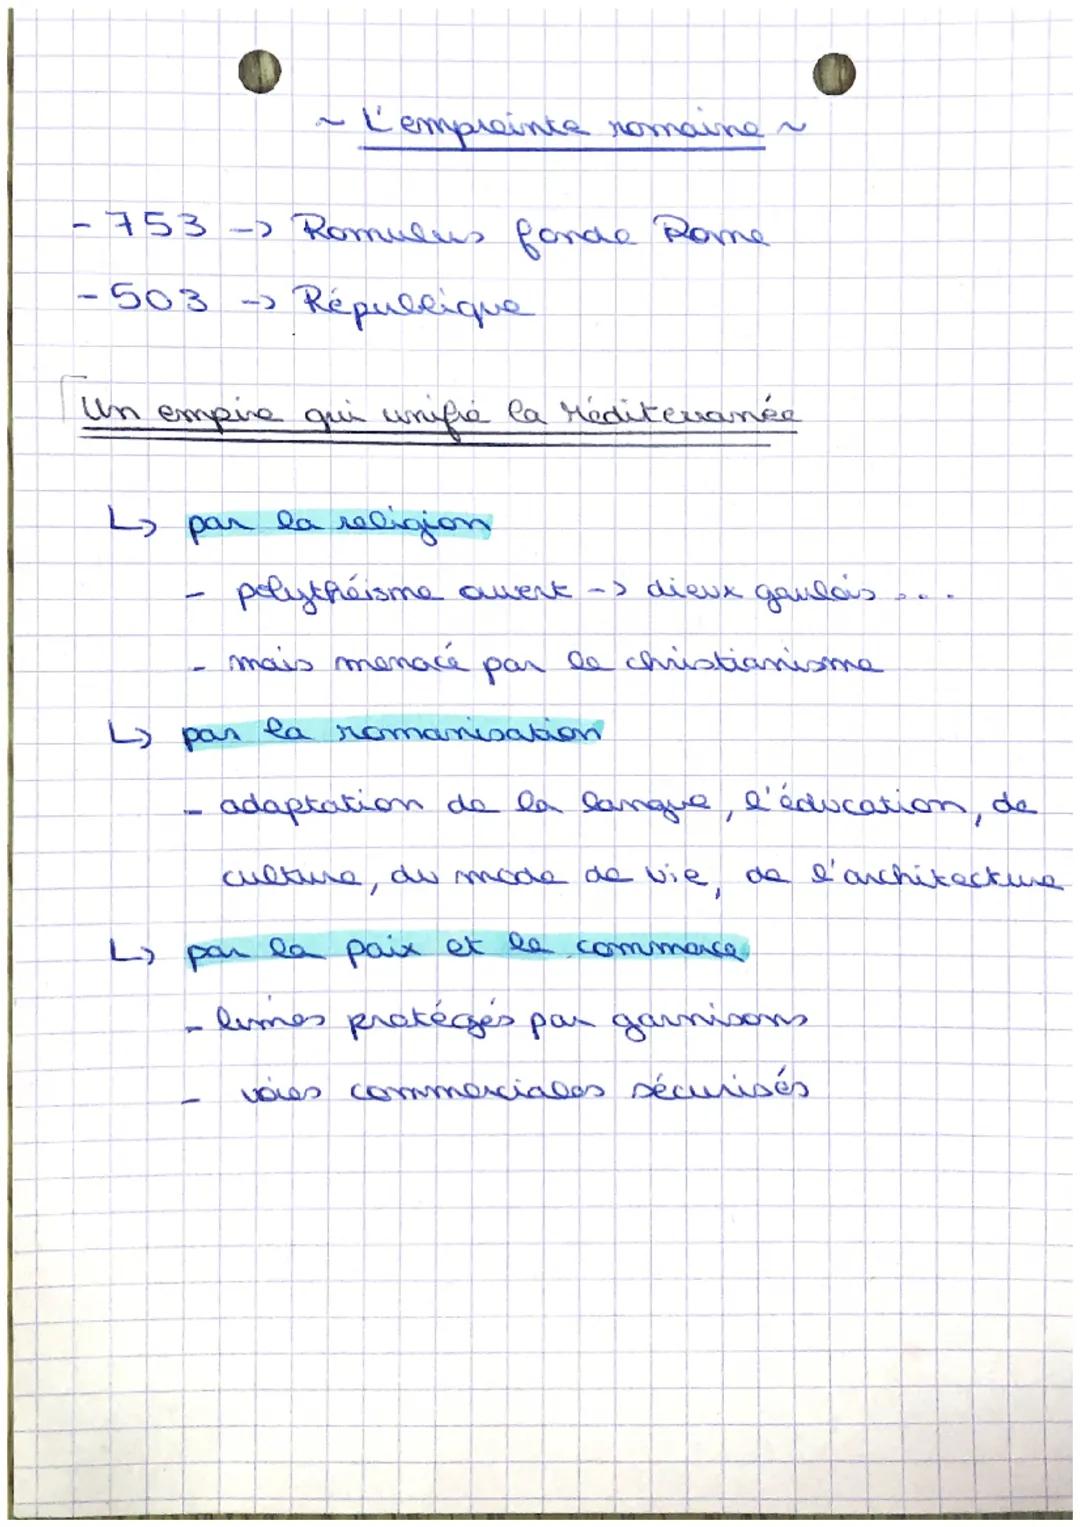 ~ L'empreinte romaine ~
- 753 -> Romulus fonde Rome
- 503 -> République
Un empire qui unifie la Méditerranée
↳ par la religion
- polythéisme ouvert -> dieux gaulois ...
- mais menacé par le christianisme
↳ par la romanisation
- adaptation de la langue, l'éducation, de
culture, du mode de vie, de l'architecture
↳ par la paix et le commerce
- limes protégés par garnisons
- voies commerciales sécurisés